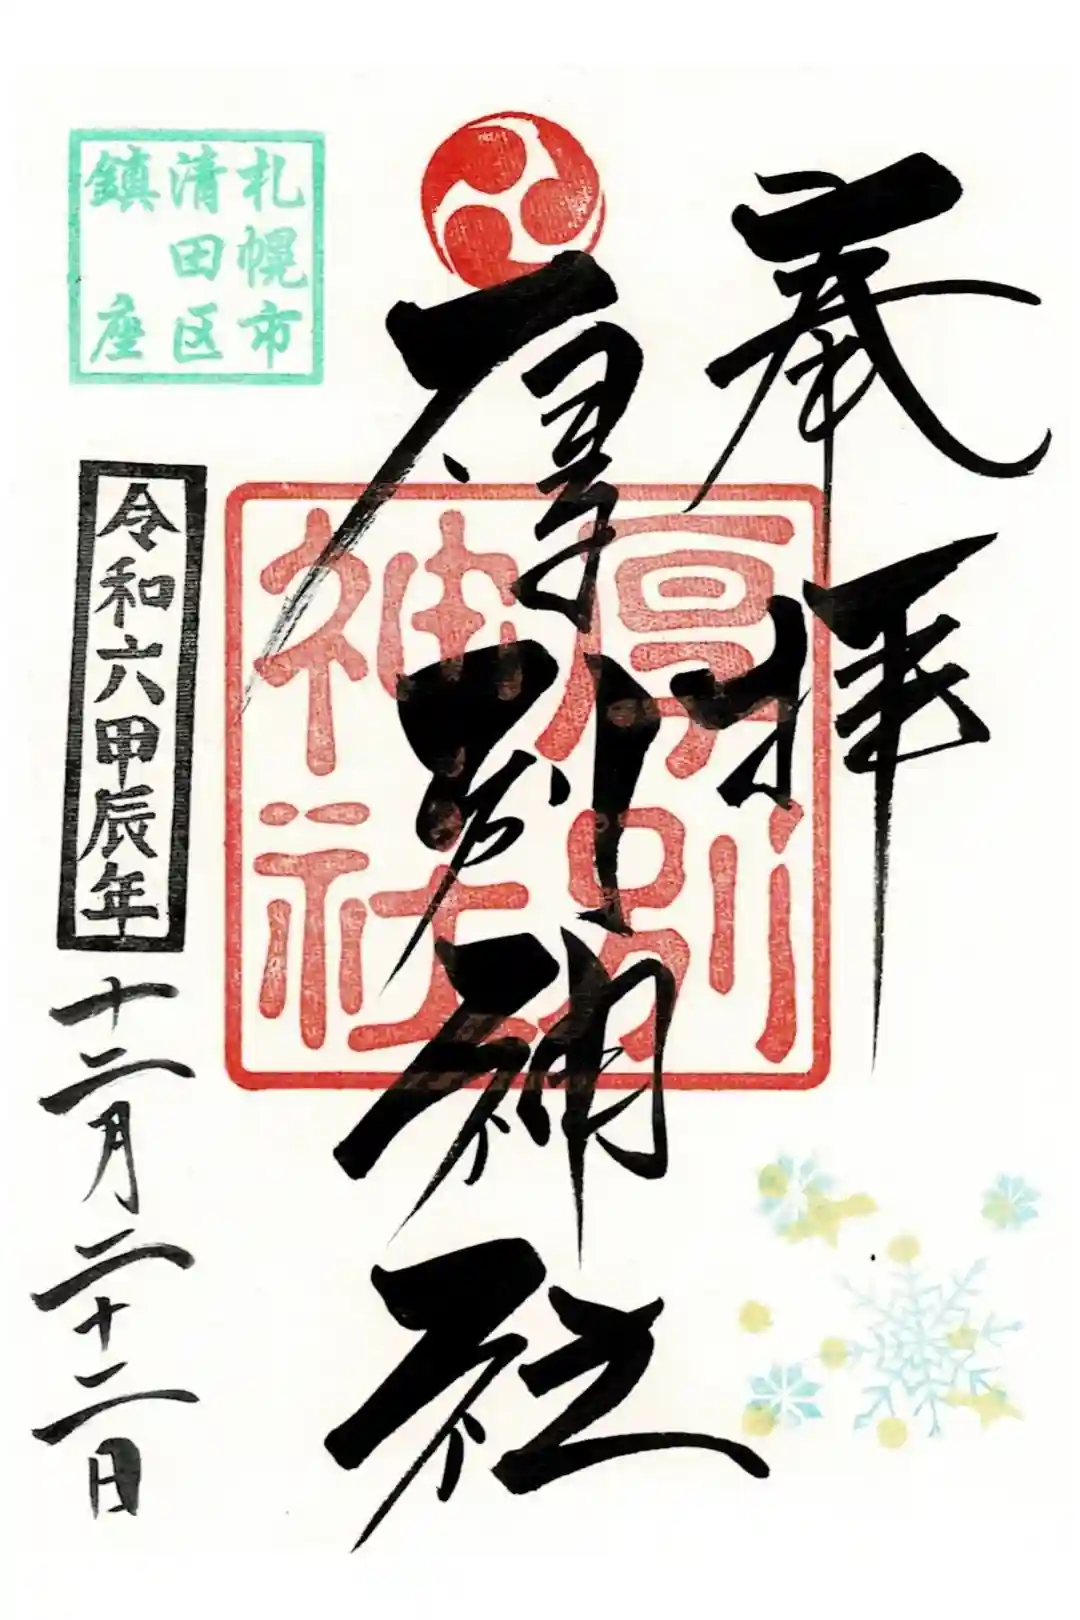 奉拝
厚別神社
厚別
神社
札幌市
清田区
鎮座
令和六甲辰年
十二月二十二日